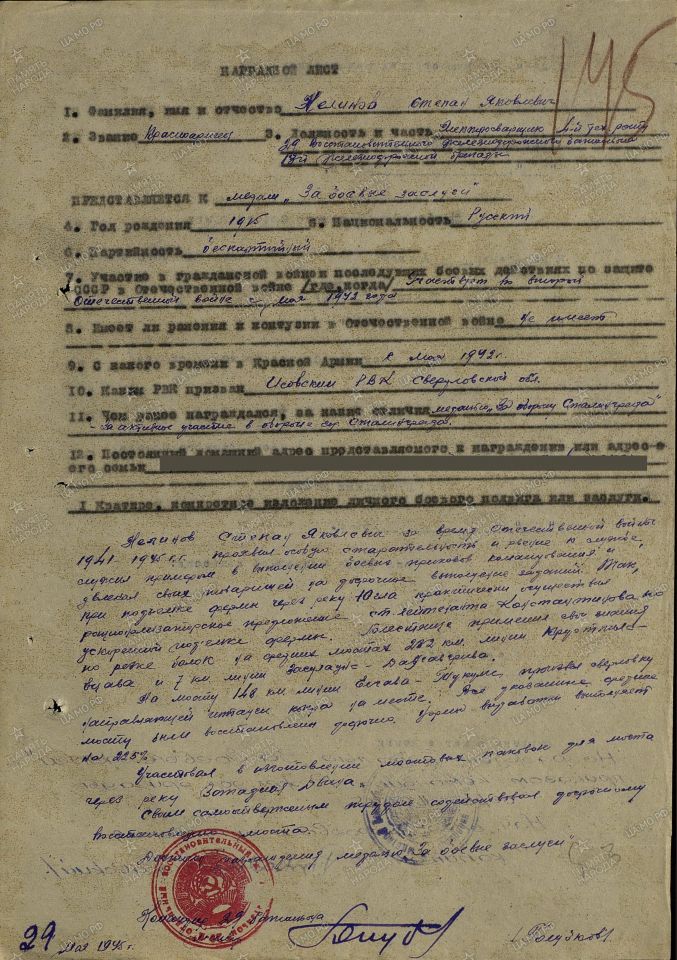 145
НАГРАДНОЙ ЛИСТ
1. Фамилия, имя и отчество Нелинов Степан Яковлевич
2. Звание Красноармеец 3. Должность и часть Электросварщик
29 Восстановительного железнодорожного батальона
железнодорожной бригады
ПРЕДСТАВЛЯЕТСЯ К медали „За боевые заслуги"
4. Год рождения 5. Национальность Русский
6. Партийность беспартийный
7. Участие в гражданской войне и последующих боевых действиях по защите
СССР в Отечественной войне /где, когда/ Участвует в
Отечественной войне с мая 1942 года
8. Имеет ли ранения и контузии в Отечественной войне Не имеет
9. С какого времени в Красной Армии с мая 1942 г.
10. Каким РВК призван Исовским РВК Свердловской обл.
11. Чем ранее награждался, за какие отличия медалью „За оборону Сталинграда"
- за активное участие в обороне гор. Сталинграда.
12. Постоянный домашний адрес представляемого к награждению или адрес
его семьи
I Краткое, конкретное изложение личного боевого подвига или заслуги.
Нелинов Степан Яковлевич за время Отечественной войны
1941-1945 г.г. проявил особую старательность и рвение к службе,
служил примером в выполнении боевых приказов командования и
своих товарищей на досрочное выполнение заданий. Так,
при подъемке ферм через реку практически осуществил
рационализаторское предложение ст. лейтенанта Константинова по
ускоренной подъемке ферм. Блестяще применил свои знания
по резке балок на средних мостах 232 км. линии
и 7 км линии
На мосту 148 км. линии произвел сварку
направляющей на месте. Все указанные средние
мосты были восстановлены досрочно. Нормы выработки выполняет
на 225%
Участвовал в изготовлении мостовых для моста
через реку Западная Двина.
Своим самоотверженным трудом содействовал досрочному
восстановлению моста.
Достоин награждения медалью „За боевые заслуги"
Командир 29 батальона
29 мая 1945 г.